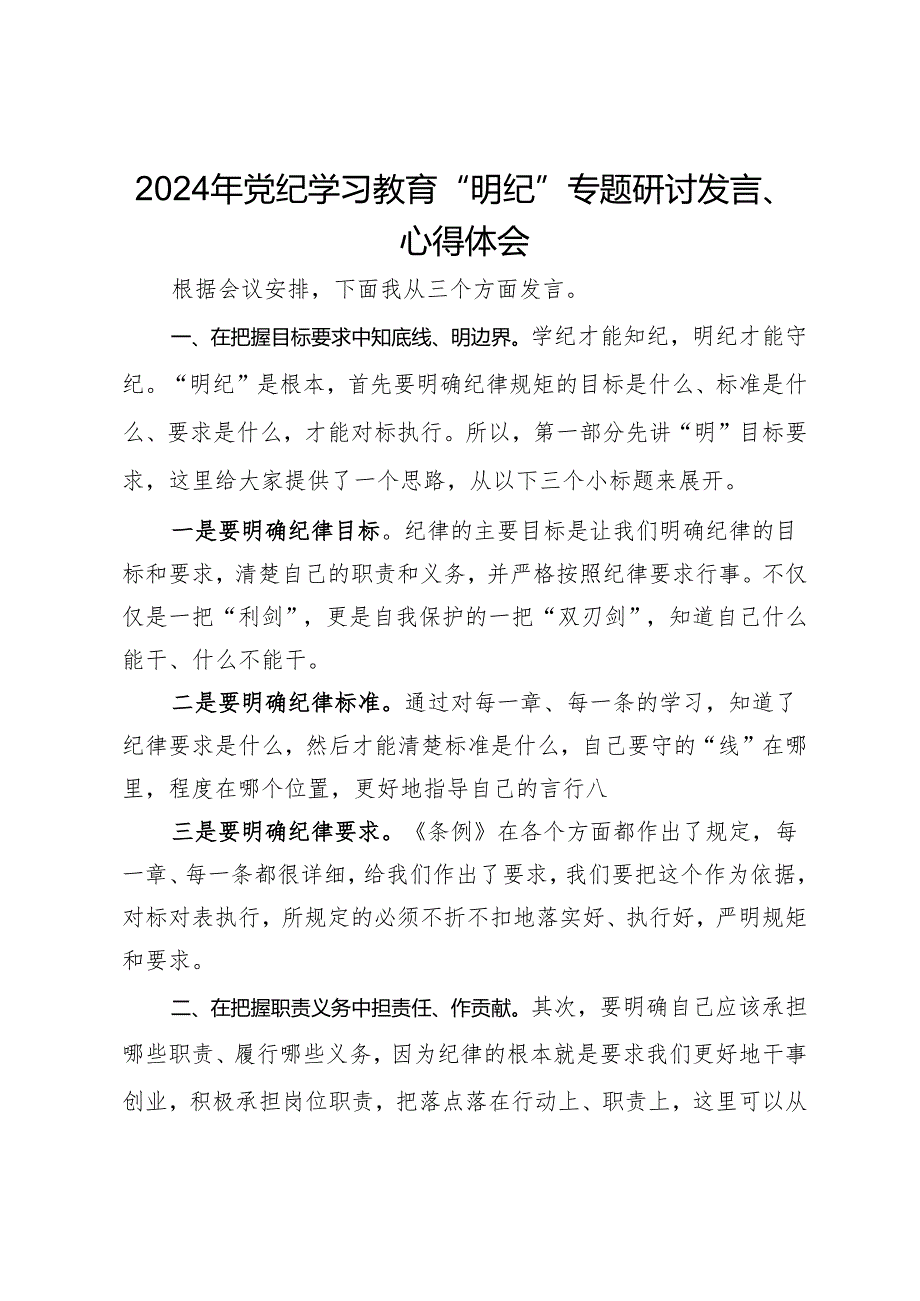 2024年党纪学习教育“明纪”专题研讨发言、
心得体会
根据会议安排，下面我从三个方面发言。
一、在把握目标要求中知底线、明边界。学纪才能知纪，明纪才能守
纪。“明纪”是根本，首先要明确纪律规矩的目标是什么、标准是什
么、要求是什么，才能对标执行。所以，第一部分先讲“明”目标要
求，这里给大家提供了一个思路，从以下三个小标题来展开。
一是要明确纪律目标。纪律的主要目标是让我们明确纪律的目
标和要求，清楚自己的职责和义务，并严格按照纪律要求行事。不仅
仅是一把“利剑”，更是自我保护的一把“双刃剑”，知道自己什么
能干、什么不能干。
二是要明确纪律标准。通过对每一章、每一条的学习，知道了
纪律要求是什么，然后才能清楚标准是什么，自己要守的“线”在哪
里，程度在哪个位置，更好地指导自己的言行八
三是要明确纪律要求。《条例》在各个方面都作出了规定，每
一章、每一条都很详细，给我们作出了要求，我们要把这个作为依据，
对标对表执行，所规定的必须不折不扣地落实好、执行好，严明规矩
和要求。
二、在把握职责义务中担责任、作贡献。其次，要明确自己应该承担
哪些职责、履行哪些义务，因为纪律的根本就是要求我们更好地干事
创业，积极承担岗位职责，把落点落在行动上、职责上，这里可以从